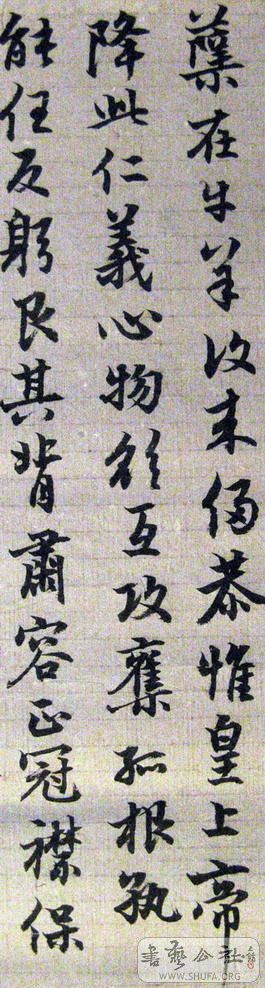 蘖在牛羊復来侵恭惟皇上帝
降此仁義心物欲互攻奪孤根孰
能任反躬艮其背肅容正冠襟保
書藝公社
WWW.SHUFA.ORG